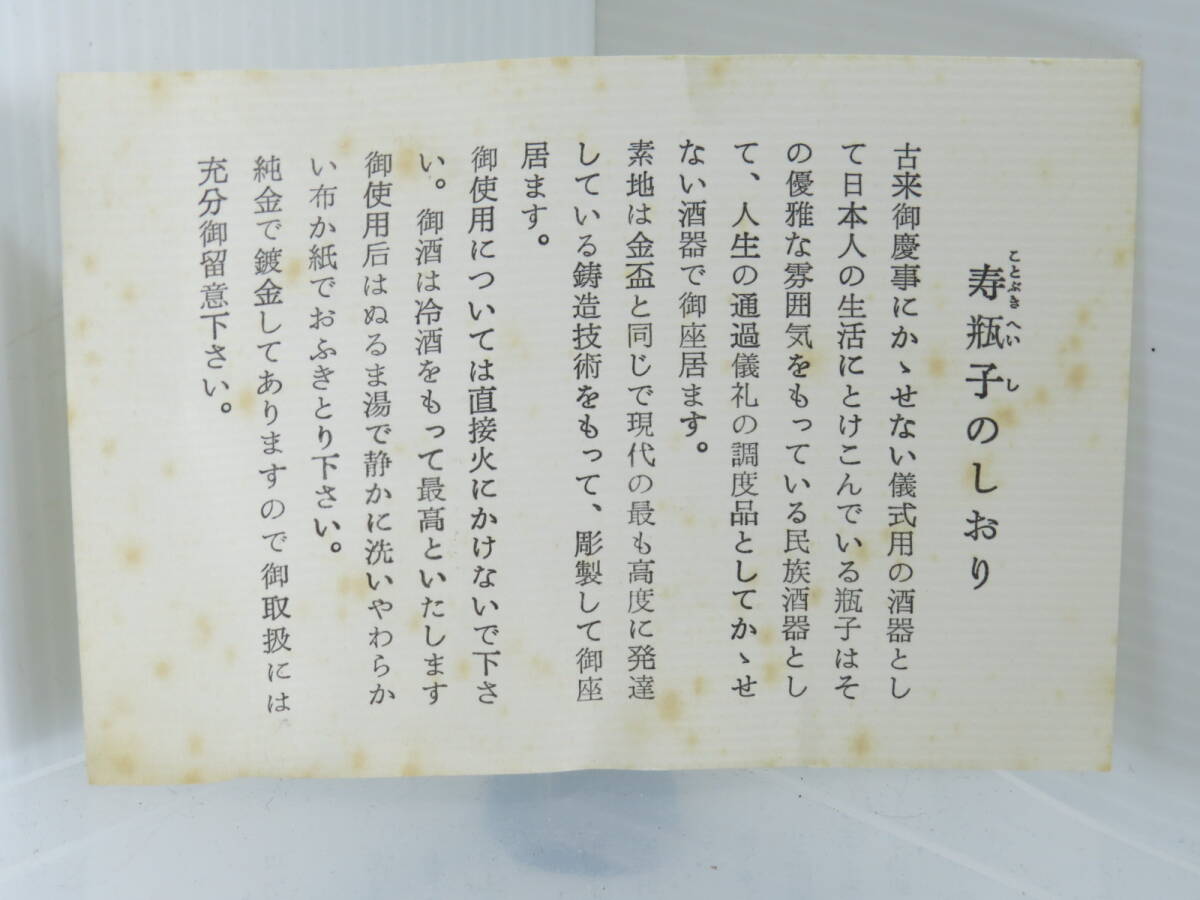 寿瓶子のしおり
ことぶきへいし
古来御慶事にかゝせない儀式用の酒器とし
て日本人の生活にとけこんでいる瓶子はそ
の優雅な雰囲気をもっている民族酒器とし
て、人生の通過儀礼の調度品としてかゝせ
ない酒器で御座居ます。
素地は金盃と同じで現代の最も高度に発達
している鋳造技術をもって、彫製して御座
居ます。
御使用については直接火にかけないで下さ
い。御酒は冷酒をもって最高といたします
御使用后はぬるま湯で静かに洗いやわらか
い布か紙でおふきとり下さい。
純金で鍍金してありますので御取扱には
充分御留意下さい。